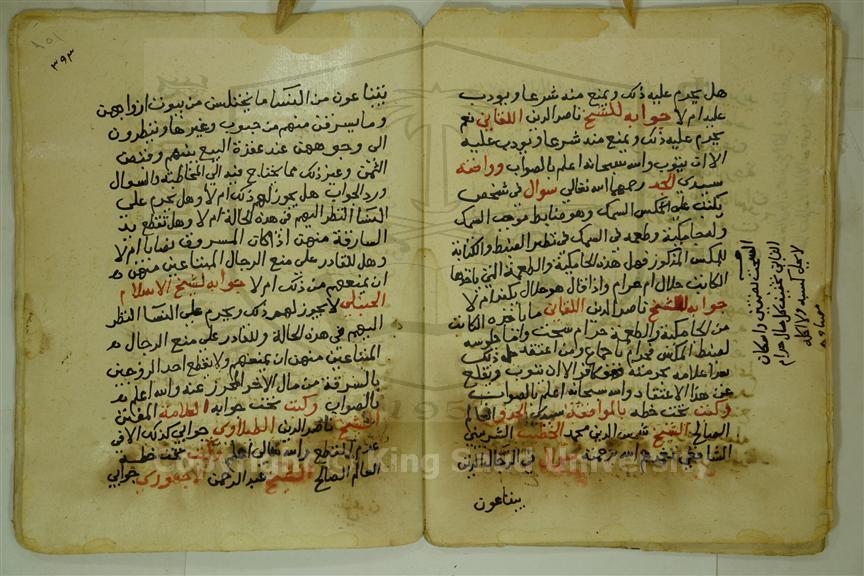 هل يحرم عليه ذلك ويمنع منه شرعا ويودب
عليه ام لا جوابه للشيخ ناصر الدين اللقاني نعم
يحرم عليه ذلك ويمنع منه شرعا ويودب عليه
الا ان يتوب والله سبحانه اعلم بالصواب ووافقه
سيدى الجد رحمهما الله تعالي سوال في شخص
يكتب على مكس السمك وهو ضابط موجب السمك
وله جامكية وطعمه فى السمك في نظير الضبط والكتابة
للمكس المذكور فهل هذه الجامكية والطعمة التي ياخذها
الكاتب حلال ام حرام واذا قال هو حلال يكفر ام لا
جوابه للشيخ ناصر الدين اللقاني ما ياخذه الكاتب
من الجامكية والطعمة حرام سحت واما جلوسه
لضبط المكس فحرام باجماع ومن اعتقد حل ذلك
بعد اعلامه بحرمته فهو كافر الا ان يتوب ويقلع
عن هذا الاعتقاد والله سبحانه اعلم بالصواب
وكتب تحت خطه بالموافقة سيدى الجد واقام
الصالح الشيخ شمس الدين محمد الخطيب الشربيني
الشافعي تغمدهم الله برحمته في الرجال الذين
يبتاعون
السحت بضمتين واسكان
الثاني تخفيف كل مال حرام
لا يحل كسبه ولا اكله
مصباح
٣٩٣
يبتاعون من النسا ما يختلس من بيوت ازواجهن
وما يسرقن منهم من حبوب وغيرها وينظرون
الى وجوههن عند عقدة البيع بينهم وقبض
الثمن وغير ذلك مما يحتاج فيه الى المخاطبة والسوال
ورد الجواب هل يجوز لهم ذلك ام لا وهل يحرم على
النسا النظر اليهم في هذه الحالة ام لا وهل تقطع يد
السارقة منهن اذا كان المسروف نصابا ام لا
وهل للقادر على منع الرجال المبتاعين منهن
ان يمنعهم من ذلك ام لا جوابه لشيخ الاسلام
الحنبلي لا يجوز لهم ذلك ويحرم على النسا النظر
اليهم في هذه الحالة وللقادر على منع الرجال
المبتاعين منهن ان يمنعهم ولا يقطع احد الزوجين
بالسرقة من مال الاخر المحرز عنه والله اعلم
بالصواب وكتب تحت جوابه العلامة المفنن
الشيخ ناصر الدين الطبلاوي جوابي كذلك الا في
عدم القطع والله تعالى اعلم وكتب تحت خطه
العالم الصالح الشيخ عبد الرحمن الاجهوري جوابي
Copyright © King Saud University
1957